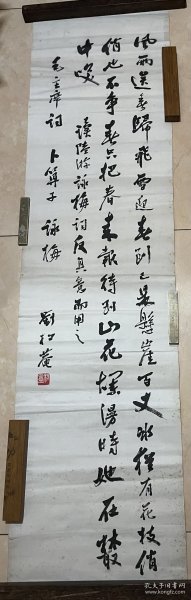 风雨送春歸飛雪迎春到已是懸崖百丈冰猶有花枝俏
俏也不争春只把春来報待到山花爛漫時她在叢
中咲
讀陸游詠梅词反其意而用之
毛主席词 卜算子 詠梅
劉松菴
孔夫子旧书网